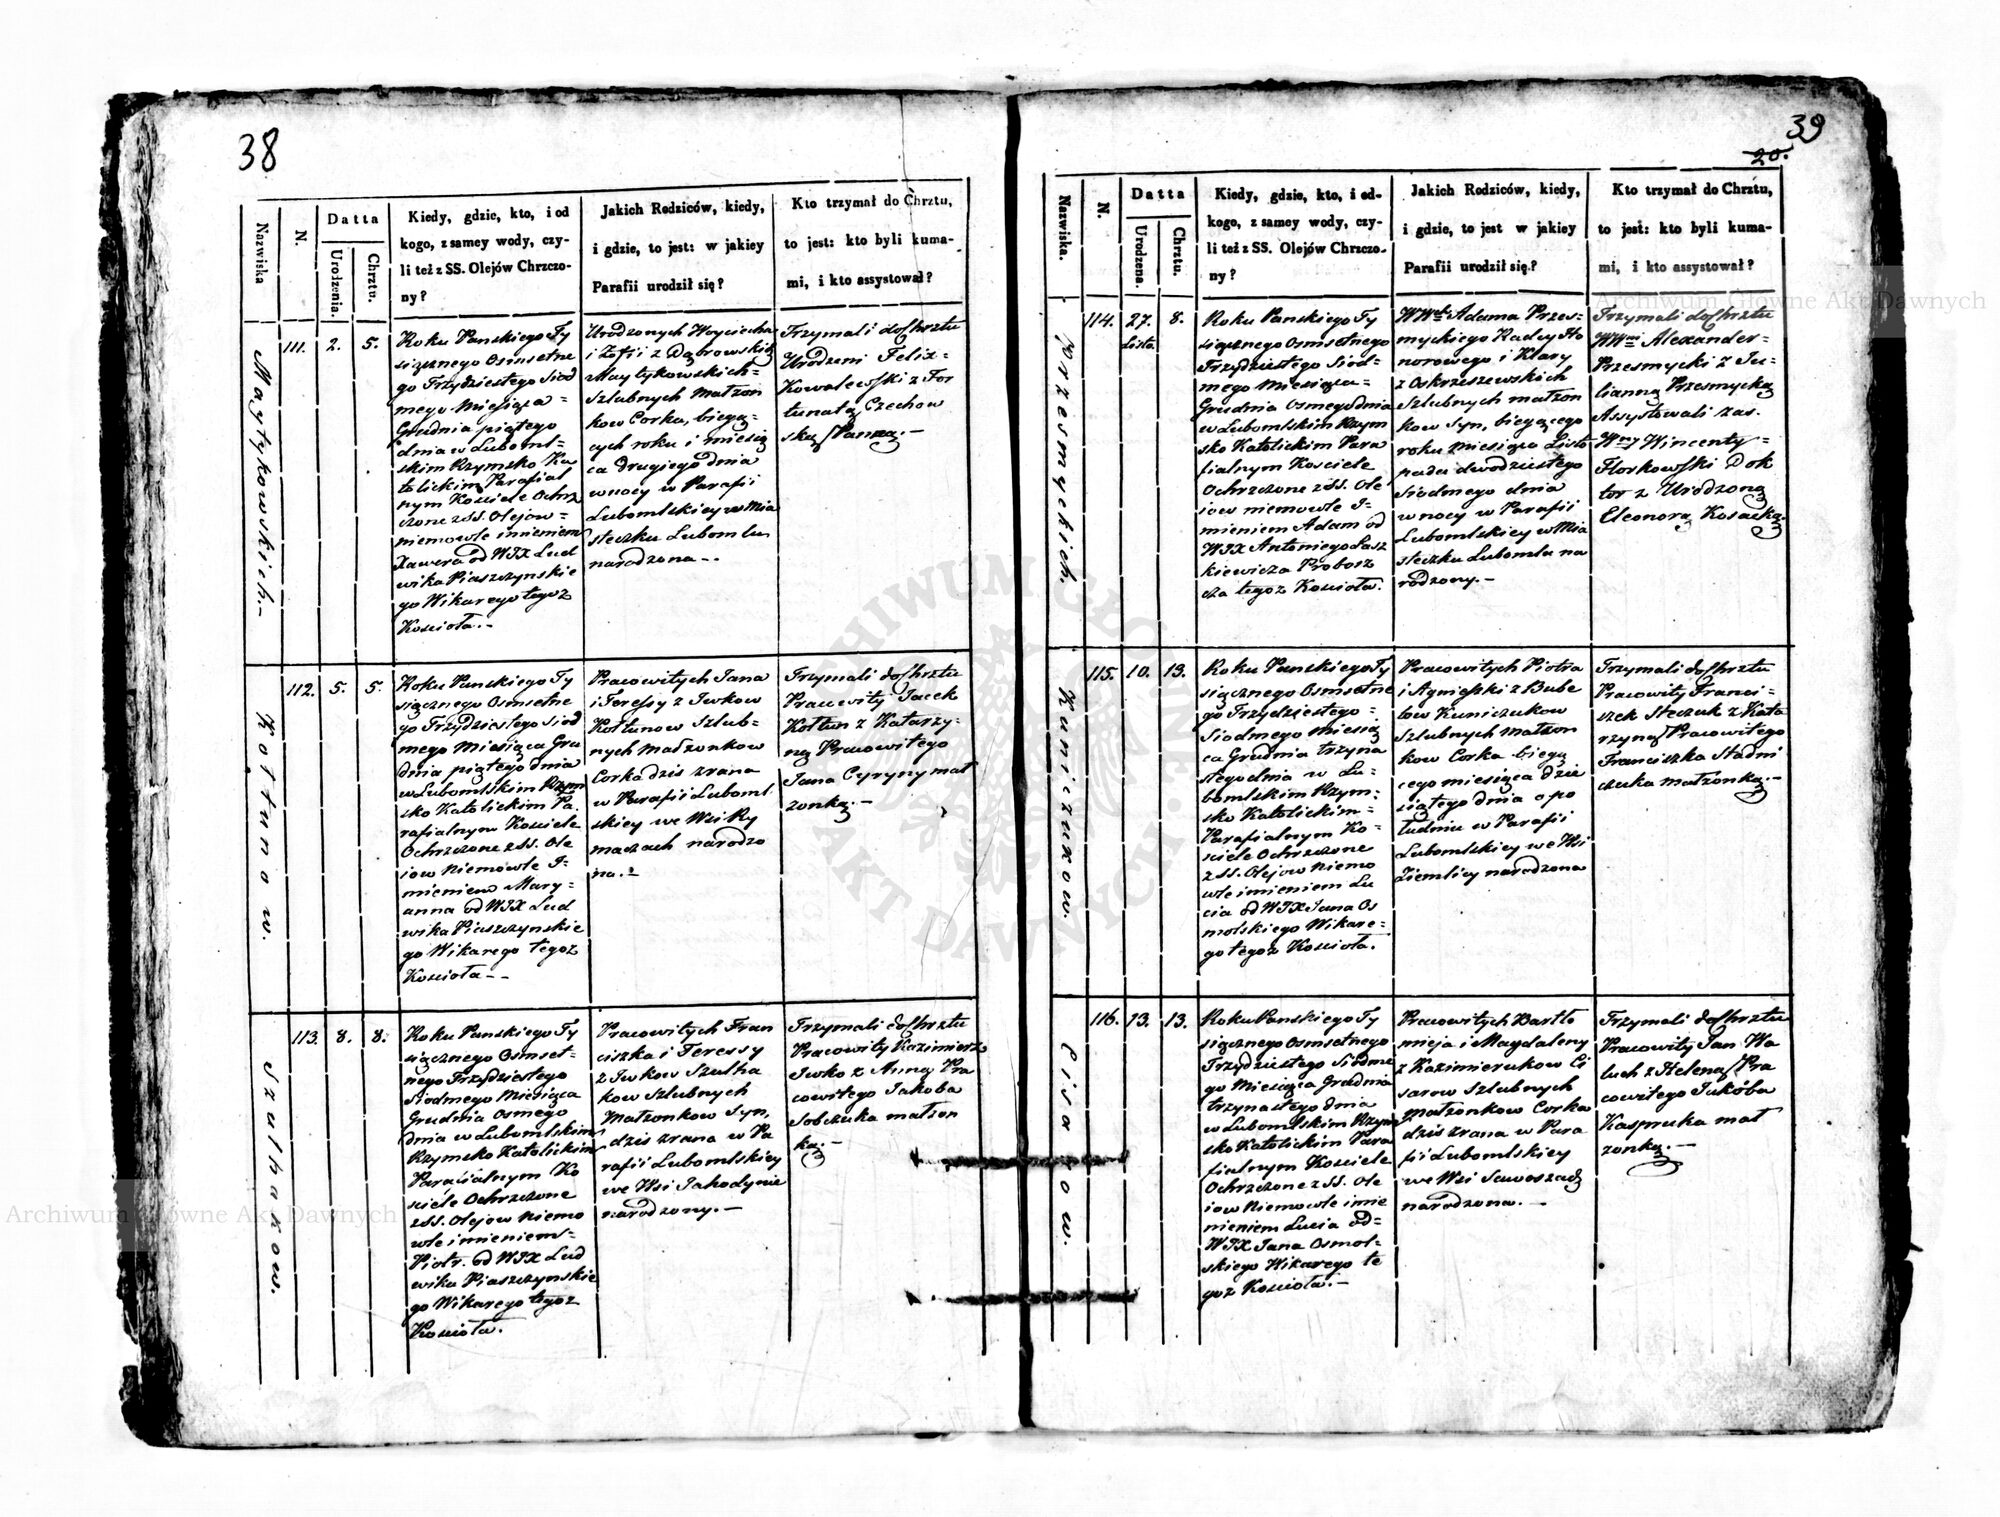 38
Nazwiska
N.
Datta
Urodzenia.
Chrztu.
Kiedy, gdzie, kto, i od
kogo, z samey wody, czy-
li też z SS. Olejów Chrzczo-
ny?
Jakich Rodziców, kiedy,
i gdzie, to jest: w jakiey
Parafii urodził się?
Kto trzymał do Chrztu,
to jest: kto byli kuma-
mi, i kto assystował?
Maytykowskich.-
111.
2.
5.
Roku Panskiego Ty
siącznego Osmsetne
go Trzydziestego Siod
mego Miesiąca =
Grudnia piątego
dnia w Luboml=
skim Rzymsko Ka
tolickim Parafial
nym Kosciele Ochrz
czone z SS. Olejow=
niemowle imieniem
Xawera od WJX Lud
wika Piaszczynskie
go Wikarego tegoz
Kosciola.-
Urodzonych Woyciecha
i Zofii z Dąbrowskich
Maytykowskich=
Szlubnych Matzon
kow Corka, biegą=
cych roku i miesią
ca drugiego dnia
w nocy w Parafii
Lubomlskiey w Mia
steczku Lubomlu
narodzona-.
Trzymali do Chrztu
Urodzeni Felix=
Kowalewski z For
tunatą Czechow
ską Panną.-
Kottunow.
112.
5.
5.
Roku Panskiego Ty
siącznego Osmsetne
go Trzydziestego Siod
mego Miesiąca Gru
dnia piątego dnia
w Lubomlskim Rzym
sko Katolickim Pa.
rafialnym Kosciele
Ochrzczone z SS. Ole
iow Niemowle I=
mieniem Mary=
anna od WJX Lud
wika Piaszczynskie
go Wikarego tegoz
Kosciota--
Pracowitych Jana
i Teressy z Iwkow
Kottunow Szlub=
nych Matzonkow
Corka dzis zrana
w Parafii Luboml
skiey we Wsi Ry
maczach narodzo
na.-
Trzymali do Chrztu
Pracowity Jacek
Kottun z Katarzy=
ną Pracowitego
Jana Cyryny mat
zonką.-
Szulhakow.
113.
8.
8.
Roku Panskiego Ty
siącznego Osmset=
nego Trzydziestego
Siodmego Miesiąca
Grudnia Osmego
dnia w Lubomlskim
Rzymsko Katolickim
Parafialnym Ko
sciele Ochrzczone
z SS. Olejow Niemo
wle imieniem=
Piotr. od WJX Lud
wika Piaszczynskie
go Wikarego tegoz
Kosciota.
Pracowitych Fran
ciszka i Teressy
z Iwkow Szulha
kow Szlubnych
Matzonkow Syn,
dzis zrana w Pa
rafii Lubomlskiey
we Wsi Jahodynie
narodzony.-
Trzymali do Chrztu
Pracowity Kazimierz
Iwko z Anną Pra
cowitego Jakoba
Sobczuka matzon
ką.-
39
20.
Nazwiska.
N.
Datta
Urodzena.
Chrztu.
Kiedy, gdzie, kto, i od-
kogo, z samey wody, czy-
li też z SS. Olejów Chrzczo-
ny?
Jakich Rodziców, kiedy,
i gdzie, to jest w jakiey
Parafii urodził się?
Kto trzymał do Chrztu,
to jest: kto byli kuma-
mi, i kto assystował?
Przesmyckich.
114.
27.
Listo.
8.
Roku Panskiego Ty
siącznego Osmsetnego
Trzydziestego Siod=
mego Miesiąca=
Grudnia Osmego dnia
w Lubomlskim Rzym
sko Katolickim Para
fialnym Kosciele
Ochrzczone z SS. Ole
iow niemowle I=
mieniem Adam od
WJX Antoniego Łasz
kiewicza Probosz
cza tegoz Kosciota.
Adama Przes=
myckiego Radcy Ho
norowego i Klary
z Oskrzeszewskich
Szlubnych matzon
kow Syn, biegącego
roku miesiąca Listo
pada dwodziestego
Siodmego dnia
w nocy w Parafii
Lubomlskiey w Mia
steczku Lubomlu na
rodzony.-
Trzymali do Chrztu
Alexander=
Przesmycki z Ju=
lianną Przesmycką
Assystowali zas.
Wincenty=
Florkowski Dok
tor z Urodzoną
Eleonorą Kosacką.
Kuniczukow.
115.
10.
13.
Roku Panskiego Ty
siącznego Osmsetne
go Trzydziestego=
Siodmego miesią
ca Grudnia trzyna
stego dnia w Lu=
bomlskim Rzym=
sko Katolickim=
Parafialnym Ko=
sciele Ochrzczone
z SS. Olejow Niemo
wle imieniem Lu
cia od WJX Jana Os
molskiego Wikare=
go tegoz Kosciota.
Pracowitych Piotra
i Agnieszki z Bube
low Kuniczukow
Szlubnych matzon
kow Corka biegą
cego miesiąca dzie
siątego dnia o po
ludniu w Parafii
Lubomlskiey we Wsi
Ziemlicy narodzona
Trzymali do Chrztu
Pracowity Franci=
szek Steczuk z Kata
rzyną Pracowitego
Franciszka Stadni
czuka matzonką.-
Cisarow.
116.
13.
13.
Roku Panskiego Ty
siącznego Osmsetnego
Trzydziestego Siodme
go Miesiąca Grudnia
trzynastego dnia
w Lubomlskim Rzym
sko Katolickim Para
fialnym Kosciele
Ochrzczone z SS. Ole
iow Niemowle imie
nieniem Lucia od=
WJX Jana Osmol=
skiego Wikarego te
goz Kosciota.-
Pracowitych Barttо
mieja i Magdaleny
z Kazimierukow Ci
sarow Szlubnych
Matzonkow Corka
dzis zrana w Para
fii Lubomlskiey
we Wsi
narodzona.-
Trzymali do Chrztu
Pracowity Jan Wa
luch z Heleną Pra
cowitego Jakóba
Kaspruka mat
zonką.-
Archiwum Główne Akt Dawnych
Archiwum Główne Akt Dawnych
ARCHIWUM GŁÓWNE AKT DAWNYCH